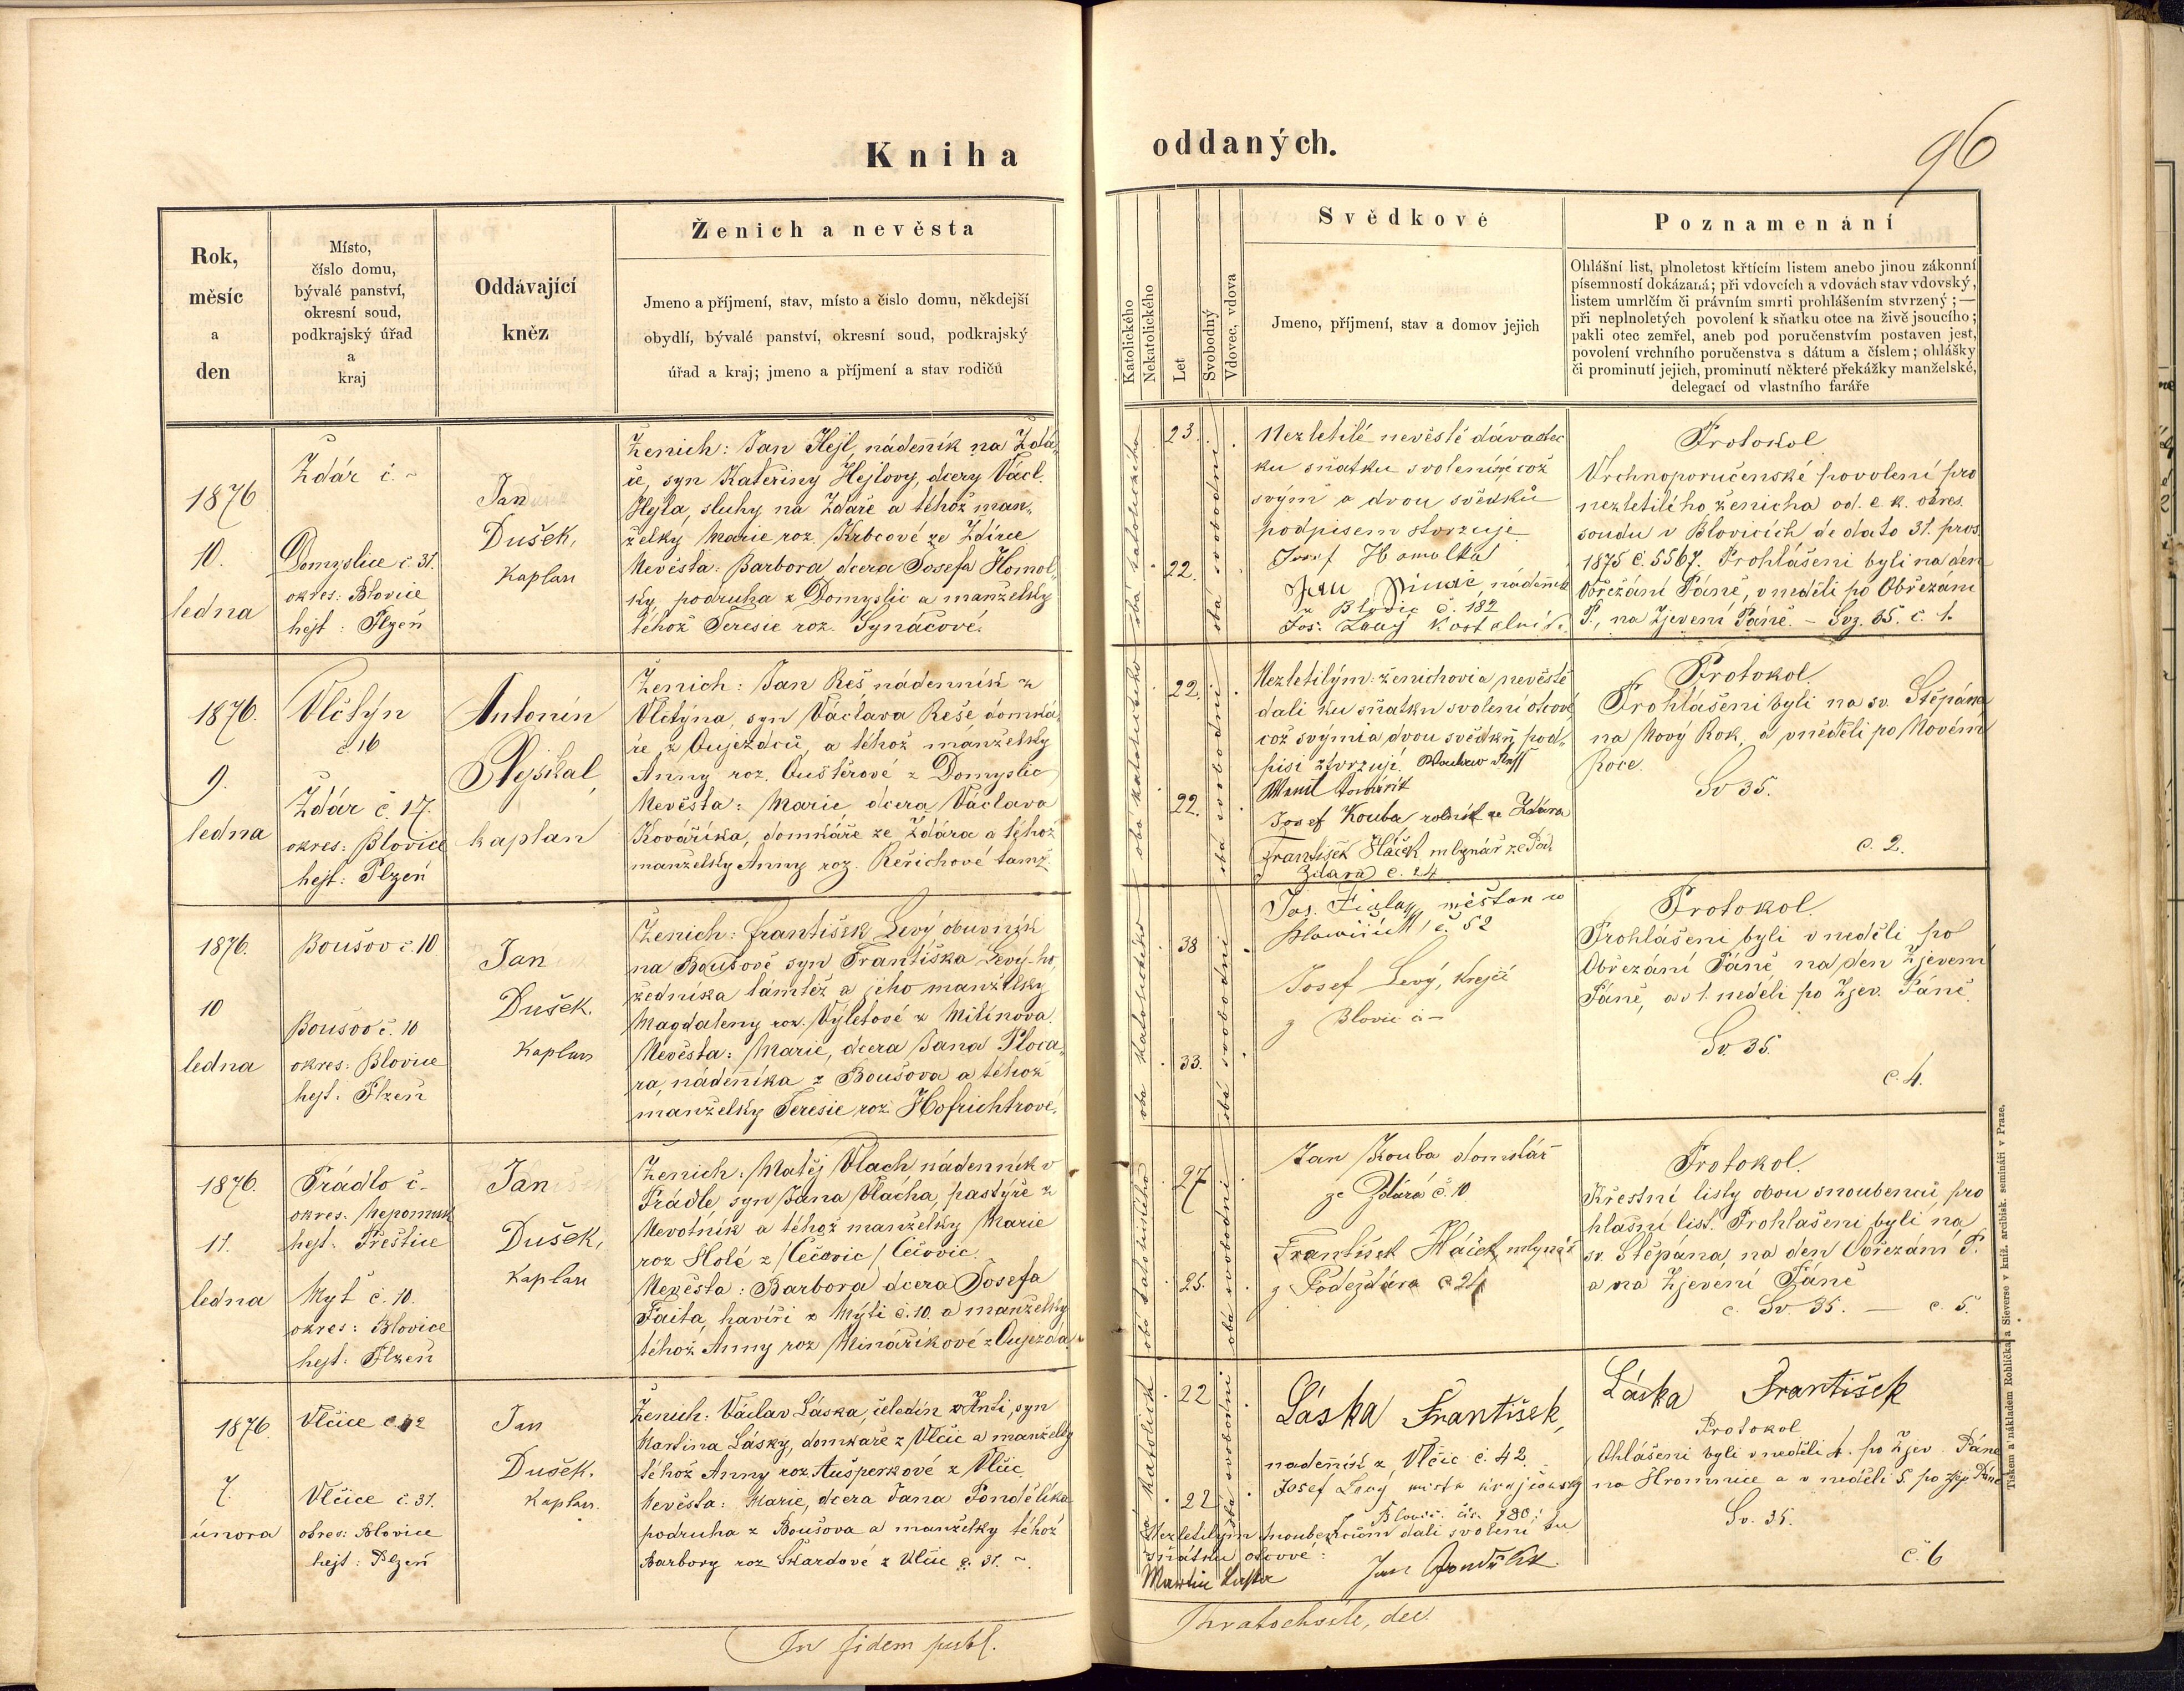 Kniha oddaných.
96
Rok,
měsíc
a
den
Místo,
číslo domu,
bývalé panství,
okresní soud,
podkrajský úřad
a
kraj
Oddávající
kněz
Ženich a nevěsta
Jmeno a příjmení, stav, místo a číslo domu, někdejší
obydlí, bývalé panství, okresní soud, podkrajský
úřad a kraj; jmeno a příjmení a stav rodičů
Katolického
Nekatolického
Let
Svobodný
Vdovec, vdova
Svědkové
Jmeno, příjmení, stav a domov jejich
Poznamenání
Ohlášní list, plnoletost křtícím listem anebo jinou zákonní
písemností dokázaná; při vdovcích a vdovách stav vdovský,
listem umrlčím či právním smrti prohlášením stvrzený; —
při neplnoletých povolení k sňatku otce na živě jsoucího;
pakli otec zemřel, aneb pod poručenstvím postaven jest,
povolení vrchního poručenstva s dátum a číslem; ohlášky
či prominutí jejich, prominutí některé překážky manželské,
delegací od vlastního faráře
1876
10.
ledna
Ždár č. ~
Domyslice č 31.
okres: Blovice
hejt: Plzeň
Jan
Dušek,
Kaplan
Ženich: Jan Hejl, nádenník na Ždá-
ře, syn Kateřiny Hejlovy, dcery Václ.
Hejla, sluhy na Ždáře a téhož man-
želky Marie roz. Krbcové ze Ždírce
Nevěsta: Barbora dcera Josefa Homol-
ky, podruha z Domyslic a manželky
téhož Teresie roz. Synáčové.
23.
22.
obá katolického
obá svobodní
Nezletilé nevěstě dává otec
ku sňatku svolení, což
svým a dvou svědků
podpisem stvrzuje
Josef Homolka
Jan nádenník
z Blovic č. 182
Jos. Levý
Protokol
Vrchnoporučenské povolení pro
nezletilého ženicha od c. k. okres.
soudu v Blovicích de dato 31. pros.
1875 č. 5567. Prohlášeni byli na den
Obřezání Páně, v neděli po Obřezání
P., na Zjevení Páně. – Svz. 35. č. 1.
1876.
9.
ledna
Vlčtýn
č 16
Ždár č. 17.
okres: Blovice
hejt: Plzeň
Antonín
Nejškal,
kaplan
Ženich: Jan Reš, nádenník z
Vlčtýna, syn Václava Reše, domká-
ře z Oujezdců, a téhož manželky
Anny roz. Ouštěrové z Domyslic
Nevěsta: Marie, dcera Václava
Kováříka, domkáře ze Ždára a téhož
manželky Anny roz. Řeřichové tamž
22.
22.
obá katolického
obá svobodní
Nezletilým: ženichovi a nevěstě
dali ku sňatku svolení otcové
což svými a dvou svědků pod-
pisi stvrzují.
Josef Kouba rolník ze Ždára
František Háček mlynář ze Pod-
Ždára č. 24
Protokol.
Prohlášeni byli na sv. Štěpána
na Nový Rok, a v neděli po Novém
Roce.
Sv 35.
č. 2.
1876.
10
ledna
Boušov č 10
Boušov č. 10
okres: Blovice
hejt: Plzeň
Jan
Dušek.
Kaplan
Ženich: František Levý obuvník
na Boušově syn Františka Levý-ho,
zedníka tamtéž a jeho manželky
Magdaleny roz. Výletové z Mitínova.
Nevěsta: Marie, dcera Jana Ploca-
ra, nádenníka z Boušova a téhož
manželky Teresie roz. Hofrichtrové.
38
33.
oba katolického
obá svobodní
Jos. Fiala, měšťan v
č. 52
Josef Levý, Krejčí
z Blovic č –
Protokol.
Prohlášeni byli v neděli po
Obřezání Páně, na den Zjevení
Páně, a v 1. neděli po Zjev. Páně.
Sv. 35.
č. 4.
1876.
11.
ledna
Prádlo č –
okres. Nepomuk
hejt. Přeštice
Myť č. 10.
okres: Blovice
hejt: Plzeň
Jan
Dušek,
Kaplan
Ženich: Matěj Vlach nádenník v
Prádle, syn Jana Vlacha, pastýře z
Nevotník a téhož manželky Marie
roz Holé z /Čečovic/ Čičovic.
Nevěsta: Barbora dcera Josefa
Faita, havíři z Mýti č. 10. a manželky
téhož Anny roz Minaříkové z Oujezda.
27
25.
oba katolického
obá svobodní
Jan Kouba domkář
ze Ždára č. 10
František Háček, mlynář
z Podeždára č 24
Protokol.
Křestní listy obou snoubenců, pro
hlašní list. Prohlašeni byli na
sv. Štěpána, na den Obřezání P.
a na Zjevení Páně
c. Sv. 35. — č. 5.
1876.
7.
února
Vlčice č 42
Vlčice č. 31.
okres: Blovice
hejt: Plzeň
Jan
Dušek.
Kaplan.
Ženich: Václav Láska, čeledín v Anti, syn
Martina Lásky, domkaře z Vlčic a manželky
téhož Anny roz. Aušperkové z Vlčic.
Nevěsta: Marie, dcera Jana Pondělíka
podruha z Boušova a manželky téhož
Barbory roz Škardové z Vlčic č. 31. ~
22
22
obá svobodní
Láska František,
nadenník z Vlčic č. 42.
Josef Levý mistr krejčovský
z Blovic. čís. 180.
Nezletilým snoubencům dali svolení ku
sňatku otcové:
Martin Laska Jan Pondělík
Láska František
Protokol
Ohlášeni byli v neděli 4. po Zjev. Páně
na Hromnice a v neděli 5. po Zjev. Páně
Sv. 35.
č. 6
In fidem publ.
Kratochvíle, děk.
Tiskem a nákladem Rohlíčka a Sieverse v kníž. arcibisk. semináři v Praze.